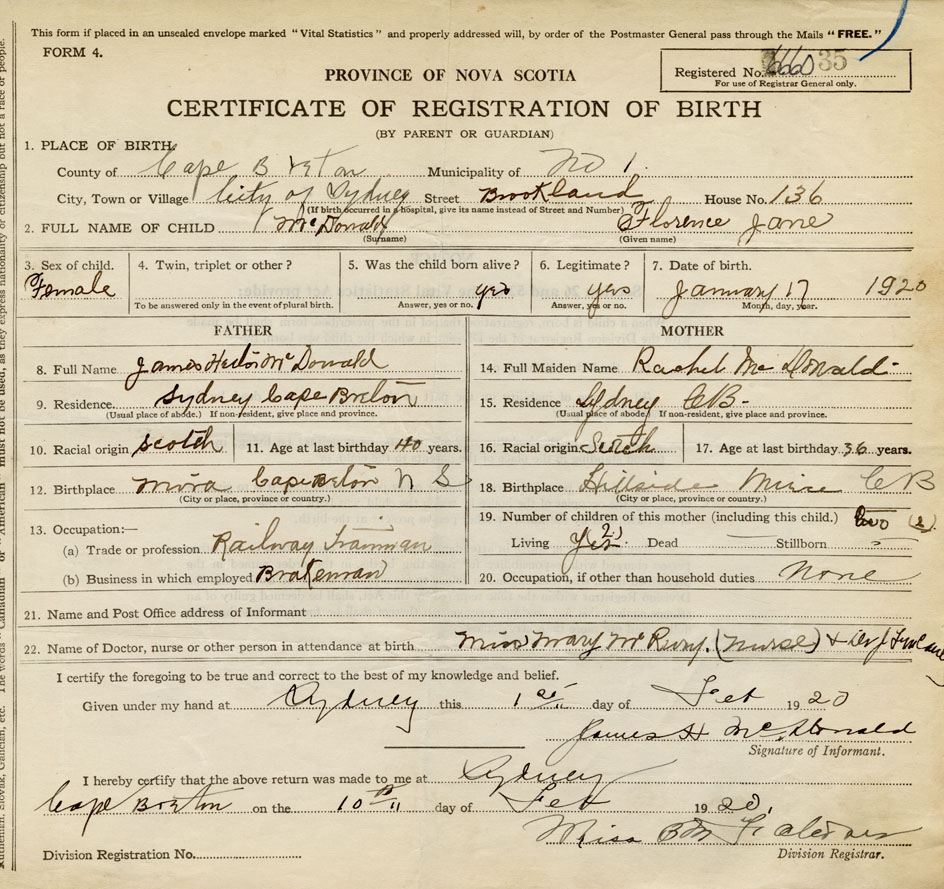 This form if placed in an unsealed envelope marked "Vital Statistics" and properly addressed will, by order of the Postmaster General pass through the Mails "FREE."
FORM 4.
Registered No. 6660 35
For use of Registrar General only.
PROVINCE OF NOVA SCOTIA
CERTIFICATE OF REGISTRATION OF BIRTH
(BY PARENT OR GUARDIAN)
1. PLACE OF BIRTH
County of Cape Breton Municipality of No 1.
City, Town or Village City of Sydney Street Brookland House No. 136
(If birth occurred in a hospital, give its name instead of Street and Number)
2. FULL NAME OF CHILD McDonald Florence Jane
(Surname) (Given name)
3. Sex of child. 4. Twin, triplet or other? 5. Was the child born alive? 6. Legitimate? 7. Date of birth.
Female yes yes January 17 1920
To be answered only in the event of plural birth. Answer, yes or no. Answer, yes or no. Month, day, year.
FATHER
8. Full Name James Hector McDonald
9. Residence Sydney Cape Breton
(Usual place of abode.) If non-resident, give place and province.
10. Racial origin Scotch 11. Age at last birthday 40 years.
12. Birthplace Mira Cape Breton N S
(City or place, province or country.)
13. Occupation:—
(a) Trade or profession Railway Trainman
(b) Business in which employed Brakeman
MOTHER
14. Full Maiden Name Rachel McDonald
15. Residence Sydney CB
(Usual place of abode.) If non-resident, give place and province.
16. Racial origin Scotch 17. Age at last birthday 36 years.
18. Birthplace Hillside Mira CB
(City or place, province or country.)
19. Number of children of this mother (including this child.) two (2)
Living Yes (2) Dead Stillborn
20. Occupation, if other than household duties None
21. Name and Post Office address of Informant
22. Name of Doctor, nurse or other person in attendance at birth Miss Mary (Nurse) &
I certify the foregoing to be true and correct to the best of my knowledge and belief.
Given under my hand at Sydney this 1st day of Feb 1920
James H McDonald
Signature of Informant.
I hereby certify that the above return was made to me at Sydney
Cape Breton on the 10th day of Feb 1920.
Miss
Division Registrar.
Division Registration No.